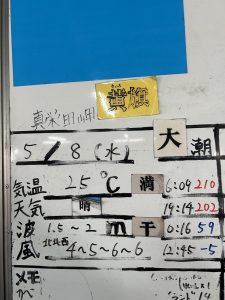 真栄田岬
黄旗
5/8(水) 大潮
気温 25℃ 満 6:09 210
天気 晴 19:14 202
波 1.5~2m 干 0:16 59
風 北北西 4~5~6~6 12:45 -5
メモ